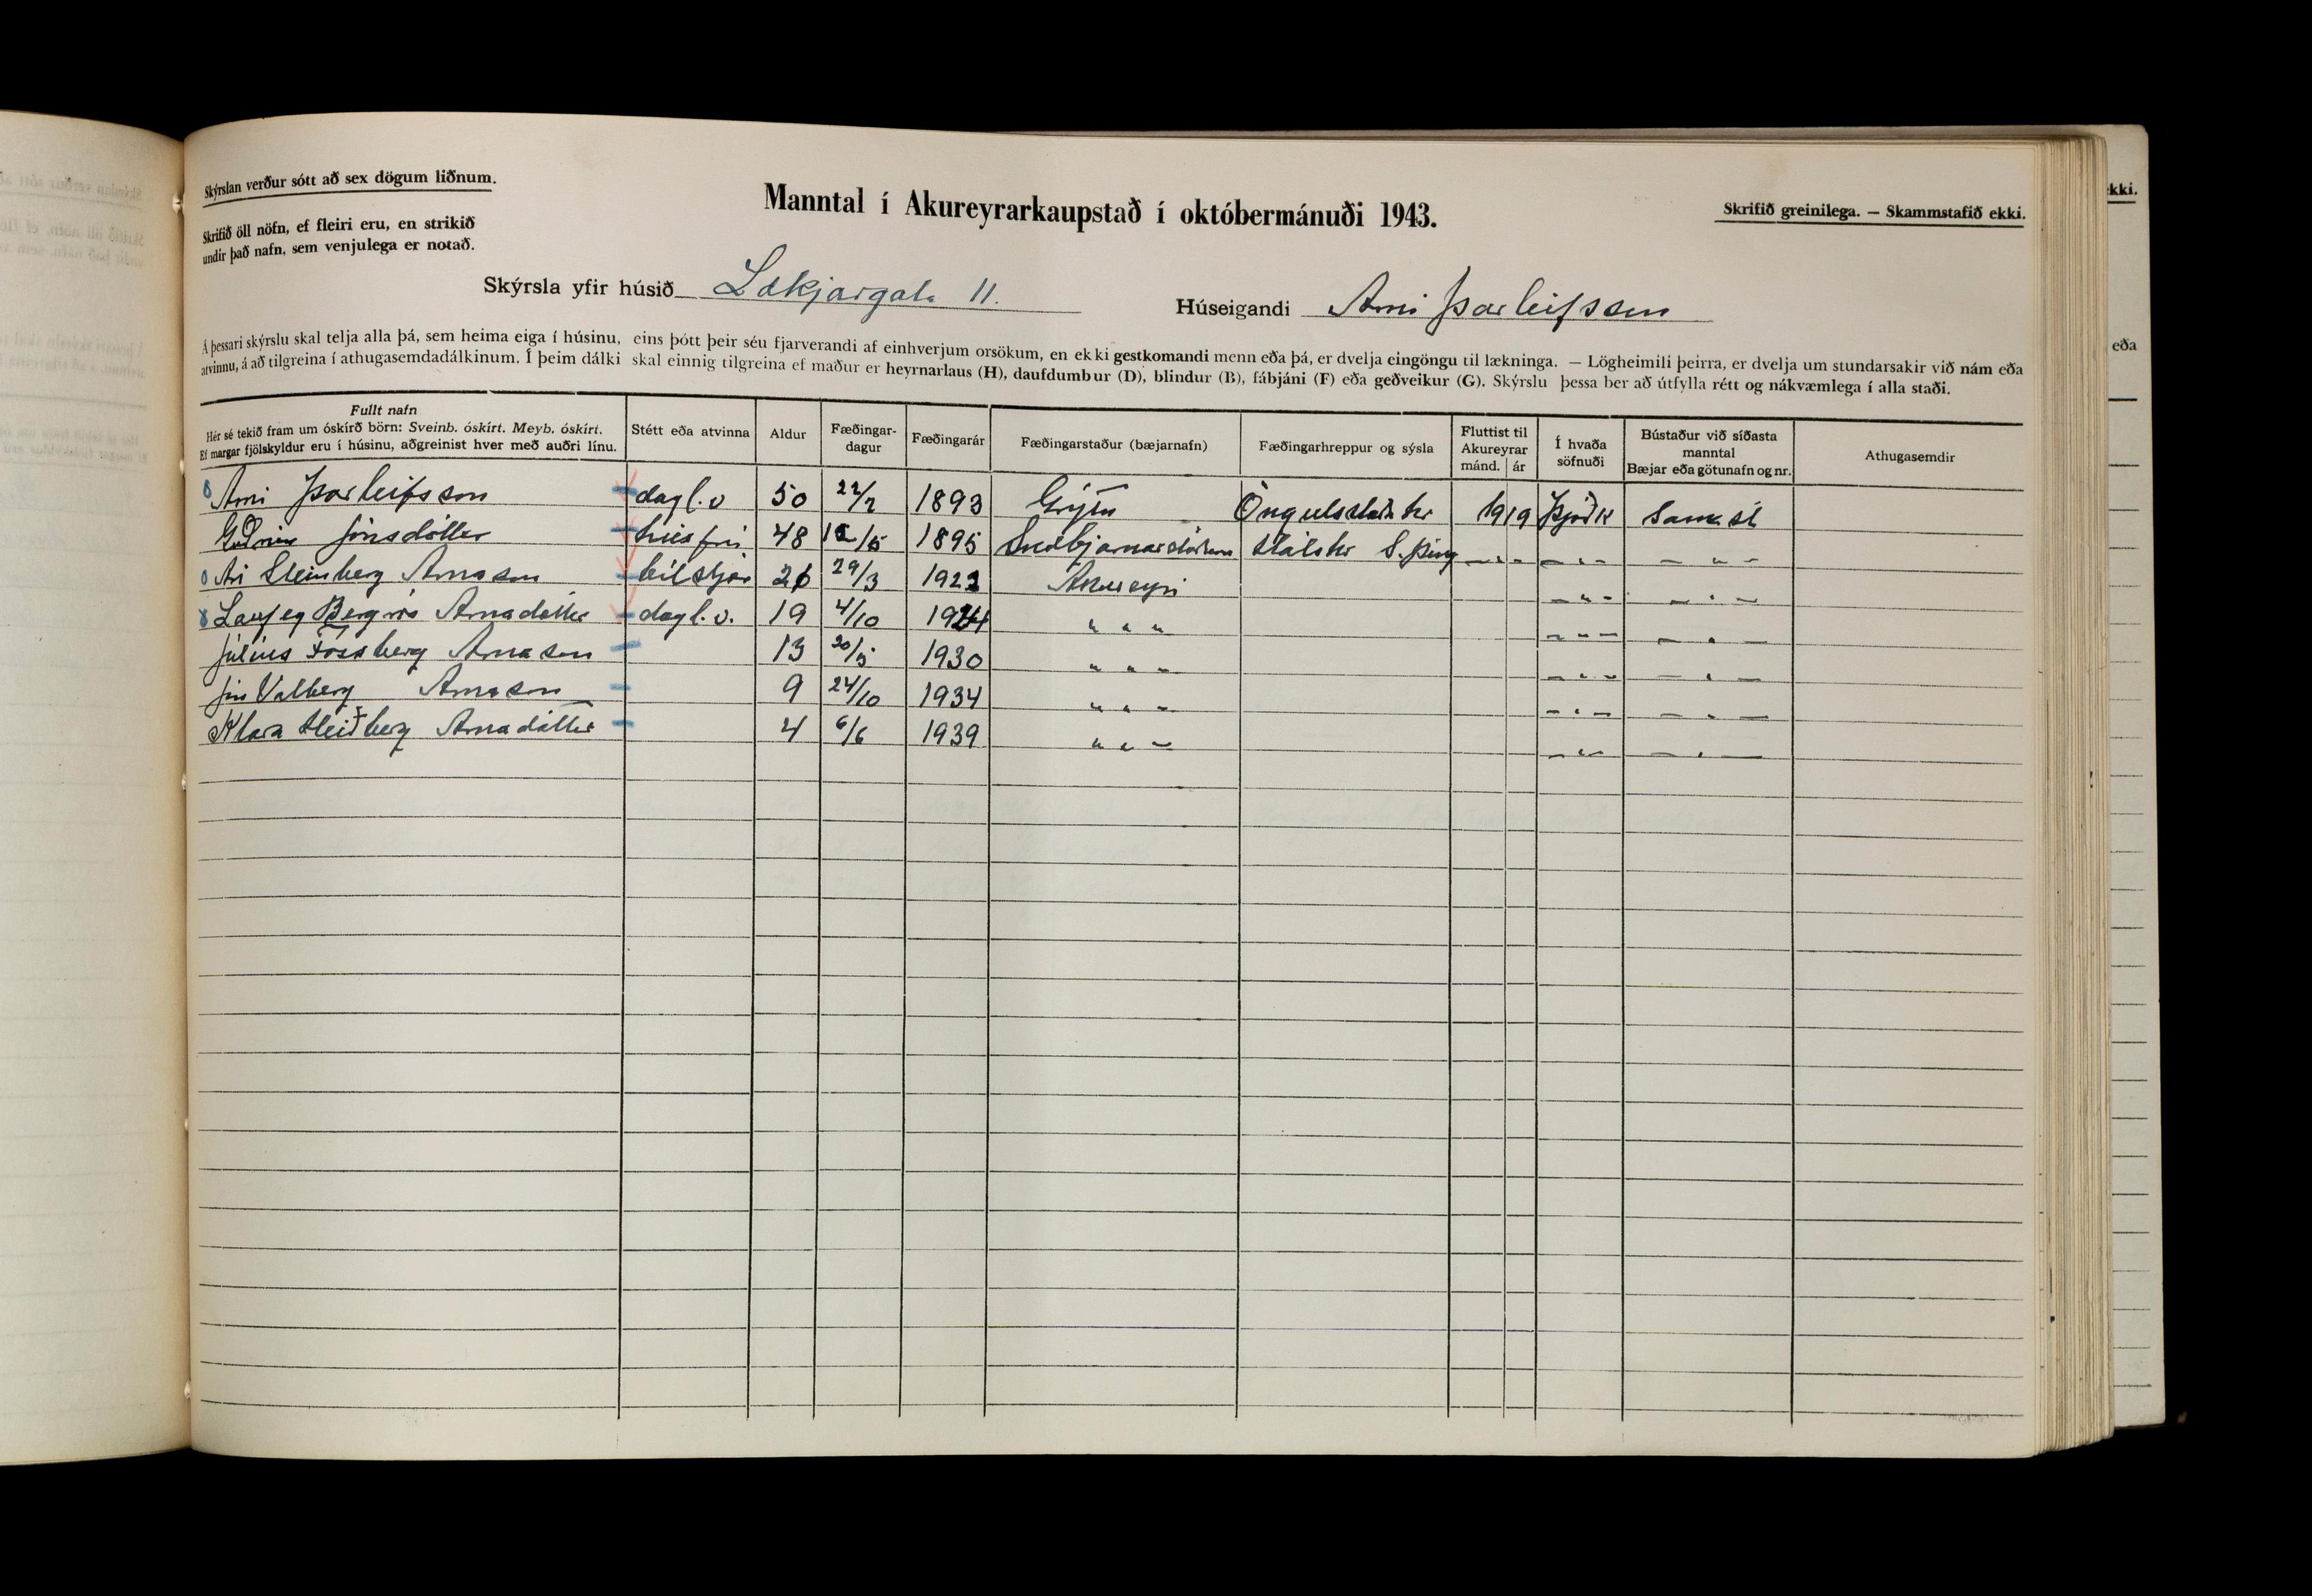 Skýrslan verður sótt að sex dögum liðnum.
Skrifið öll nöfn, ef fleiri eru, en strikið
undir það nafn, sem venjulega er notað.
Manntal í Akureyrarkaupstað í októbermánuði 1943.
Skrifið greinilega. — Skammstafið ekki.
Skýrsla yfir húsið Lækjargata 11.
Húseigandi Árni Þorleifsson
Á þessari skýrslu skal telja alla þá, sem heima eiga í húsinu, eins þótt þeir séu fjarverandi af einhverjum orsökum, en ekki gestkomandi menn eða þá, er dvelja eingöngu til lækninga. — Lögheimili þeirra, er dvelja um stundarsakir við nám eða
atvinnu, á að tilgreina í athugasemdadálkinum. Í þeim dálki skal einnig tilgreina ef maður er heyrnarlaus (H), daufdumbur (D), blindur (B), fábjáni (F) eða geðveikur (G). Skýrslu þessa ber að útfylla rétt og nákvæmlega í alla staði.
Fullt nafn
Hér sé tekið fram um óskírð börn: Sveinb. óskírt. Meyb. óskírt.
Ef margar fjölskyldur eru í húsinu, aðgreinist hver með auðri línu.
Stétt eða atvinna
Aldur
Fæðingar-
dagur
Fæðingarár
Fæðingarstaður (bæjarnafn)
Fæðingarhreppur og sýsla
Fluttist til
Akureyrar
mánd. ár
Í hvaða
söfnuði
Bústaður við síðasta
manntal
Bæjar eða götunafn og nr.
Athugasemdir
Árni Þorleifsson dagl.v 50 22/2 1893 Grýtu Öngulsstaðahr 1919 Þjóðk Sama st
Guðrún Jónsdóttir húsfrú 48 1895 Hálshr S. Þing — " — — " — — " —
Ari Steinberg Árnason bílstjór 29/3 Akureyri — " — — " —
Laufey Bergrós Árnadóttir dagl.v. 19 4/10 1924 " " " — " — — " —
Júlíus Fossberg Árnason 13 20/5 1930 " " " — " — — " —
Jón Valberg Árnason 9 24/10 1934 " " " — " — — " —
Klara Heiðberg Árnadóttir 4 6/6 1939 " " " — " — — " —
kki.
eða